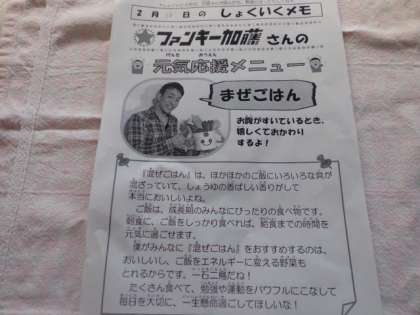 2月 日の しょくいくメモ
ファンキー加藤さんの
げんき おうえん
元気応援メニュー
まぜごはん
お腹がすいているとき、
嬉しくておかわり
するよ!
『混ぜごはん』は、ほかほかのご飯にいろいろな具が
混ざっていて、しょうゆの香ばしい香りがして
本当においしいよね。
ご飯は、成長期のみんなにぴったりの食べ物です。
朝食に、ご飯をしっかり食べれば、給食までの時間を
元気に過ごせます。
僕がみんなに『混ぜごはん』をおすすめするのは、
おいしいし、ご飯をエネルギーに変える野菜も
とれるからです。一石二鳥だね!
たくさん食べて、勉強や運動をパワフルにこなして
毎日を大切に、一生懸命過ごしてほしいな!